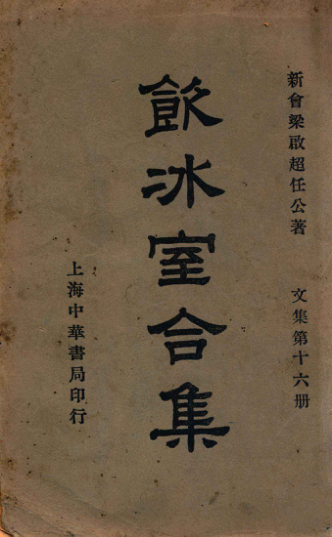 新會梁啟超任公著 文集第十六册
飲冰室合集
上海中華書局印行